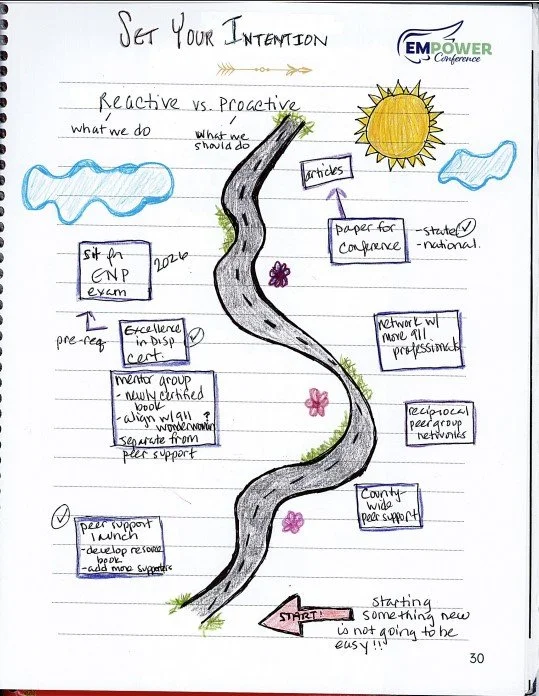 SET YOUR INTENTION
EMPOWER
Conference
Reactive vs. Proactive
what we do
what we
should do
articles
paper for
conference
- state
- national
sit for
ENP
exam
2026
pre-req
Excellence
in Disp
cert.
network w/
more 911
professionals
mentor group
- newly certified
book
- align w/ 911 ?
wonderwomen
separate from
peer support
reciprocal
peer group
networks
County-
wide
peer support
peer support
launch
- develop resource
book
- add more supporters
START!
starting
something new
is not going to be
easy!!
30